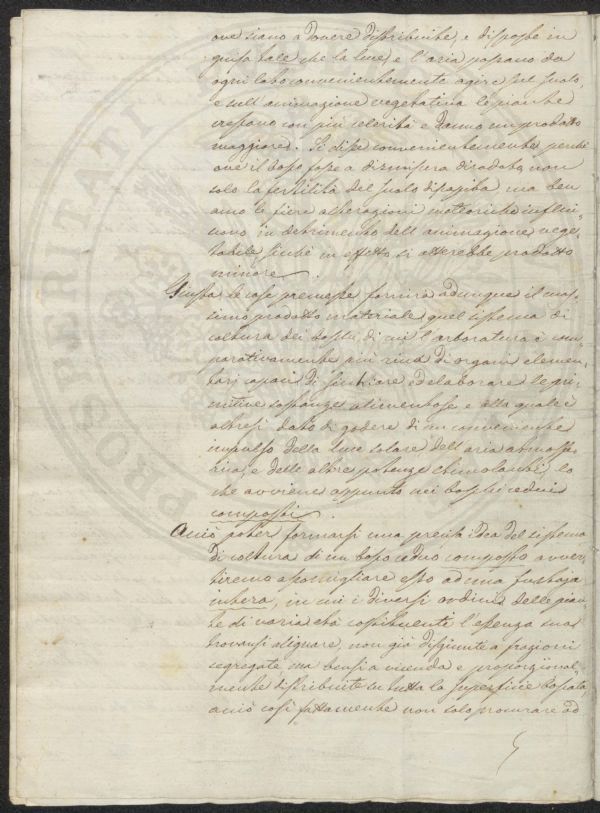 ove siano a dovere distribuite, e disposte in
guisa tale che la luce, e l'aria possano da
ogni lato convenientemente agire sul suolo,
e sull'animazione vegetativa le piante
crescono con più celerità e danno un prodotto
maggiore. Si disse convenientemente, perchè
ove il bosco fosse a dismisura diradato, non
solo la fertilità del suolo dissipasi ma ben
anco le fiere alterazioni meteoriche influi=
scono in detrimento dell'animazione vege=
tabile, sicchè in effetto si otterrebbe prodotto
minore.
Giusta le cose premesse fornirà adunque il mas=
simo prodotto materiale quel sistema di
coltura dei boschi, di cui l'arboratura è com=
parativamente più ricca di organi elemen=
tari capaci di succhiare ed elaborare le pri=
mitive sostanze alimentose e alla quale è
altresì dato di godere di un conveniente
impulso della luce solare dell'aria atmosfe=
rica, e delle altre potenze stimolanti, lo
che avviene appunto nei boschi cedui
composti.
Acciò poter formarsi una precisa idea del sistema
di coltura di un bosco ceduo composto avver=
tiremo assomigliare esso ad una fustaja
intera, in cui i diversi ordini delle pian=
te di varia età costituenti l'essenza sua
trovansi allignare, non già disgiunte a frazioni
segregate ma bensì a vicenda e proporzional=
mente distribuite su tutta la superficie boscata,
acciò così fattamente non solo procurare ad